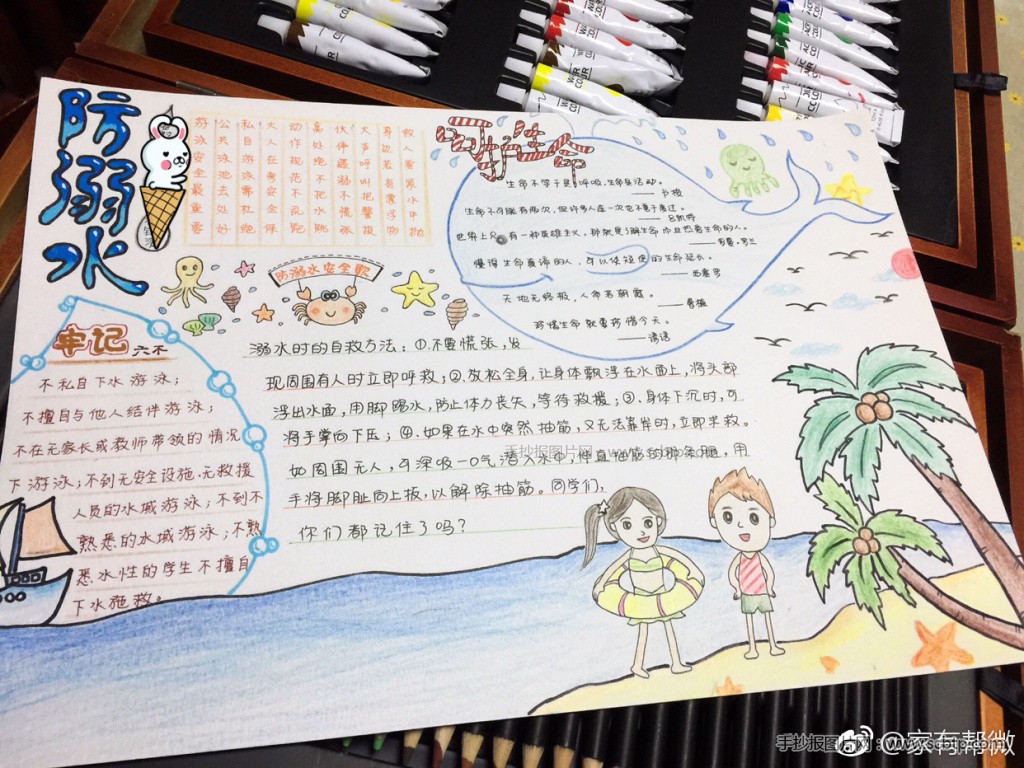 防溺水
游泳安全最重要
公共泳池去处好
私自游泳需杜绝
大人在旁安全保
动作规范不乱跑
伙伴遇溺不慌张
大声呼叫把警报
身边若有漂浮物
呵护生命
生命不等于是呼吸,生命是活动。
—— 卢梭
生命不可能有两次,但许多人连一次也不善于度过。
—— 吕凯特
世界上只有一种英雄主义,那就是了解生命而且热爱生命的人。
—— 罗曼·罗兰
懂得生命真谛的人,可以使短促的生命延长。
—— 西塞罗
天地无终极,人命若朝露。
—— 曹植
珍惜生命就要珍惜今天。
—— 谚语
防溺水安全歌
牢记六不
不私自下水游泳;
不擅自与他人结伴游泳;
不在无家长或教师带领的情况
下游泳;不到无安全设施、无救援
人员的水域游泳;不到不
熟悉的水域游泳;不熟
悉水性的学生不擅自
下水施救。
溺水时的自救方法:①.不要慌张,发
现周围有人时立即呼救;②.放松全身,让身体飘浮在水面上,将头部
浮出水面,用脚踢水,防止体力丧失,等待救援;③.身体下沉时,可
将手掌向下压;④.如果在水中突然抽筋,又无法靠岸时,立即求救。
如周围无人,可深吸一口气潜入水中,伸直抽筋的那条腿,用
手将脚趾向上扳,以解除抽筋。同学们,
你们都记住了吗?
手抄报图片网
手抄报图片网
@家有帮微